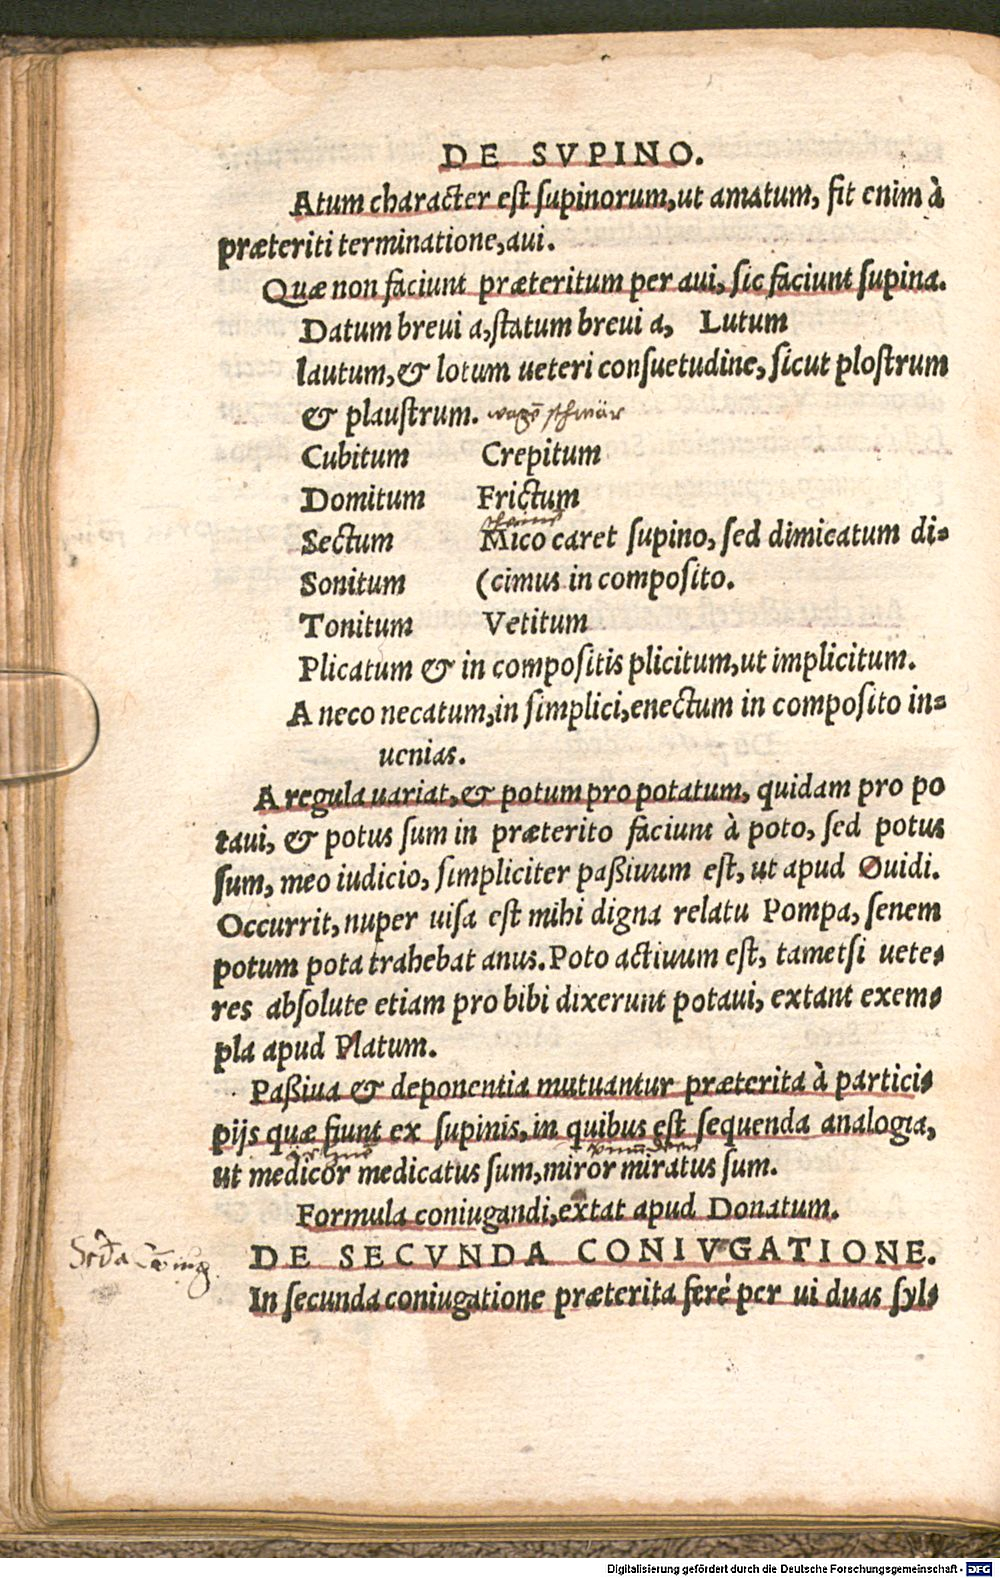 DE SVPINO.
Atum character est supinorum, ut amatum, fit enim à
præteriti terminatione, aui.
Quæ non faciunt præteritum per aui, sic faciunt supina.
Datum breui a, statum breui a, Lutum
lautum, & lotum ueteri consuetudine, sicut plostrum
& plaustrum. wagē schmär
Cubitum Crepitum
Domitum Frictum
Sectum Mico caret supino, sed dimicatum di-
Sonitum (cimus in composito.
Tonitum Vetitum
Plicatum & in compositis plicitum, ut implicitum.
A neco necatum, in simplici, enectum in composito in-
uenias.
A regula uariat, & potum pro potatum, quidam pro po
taui, & potus sum in præterito faciunt à poto, sed potus
sum, meo iudicio, simpliciter paßiuum est, ut apud Ouidi.
Occurrit, nuper uisa est mihi digna relatu Pompa, senem
potum pota trahebat anus. Poto actiuum est, tametsi uete-
res absolute etiam pro bibi dixerunt potaui, extant exem-
pla apud Platum.
Paßiua & deponentia mutuantur præterita à partici-
pijs quæ fiunt ex supinis, in quibus est sequenda analogia,
ut medicor medicatus sum, miror miratus sum.
Formula coniugandi, extat apud Donatum.
DE SECVNDA CONIVGATIONE.
In secunda coniugatione præterita ferè per ui duas syl-
Digitalisierung gefördert durch die Deutsche Forschungsgemeinschaft - DFG